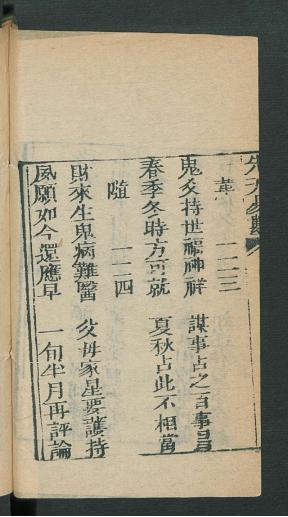 先天易數
革 一二三
鬼爻持世福神祥 謀事占之百事昌
春季冬時方可就 夏秋占此不相當
隨 一二四
財來生鬼病難醫 父母家星要護持
夙願如今還應早 一旬半月再評論